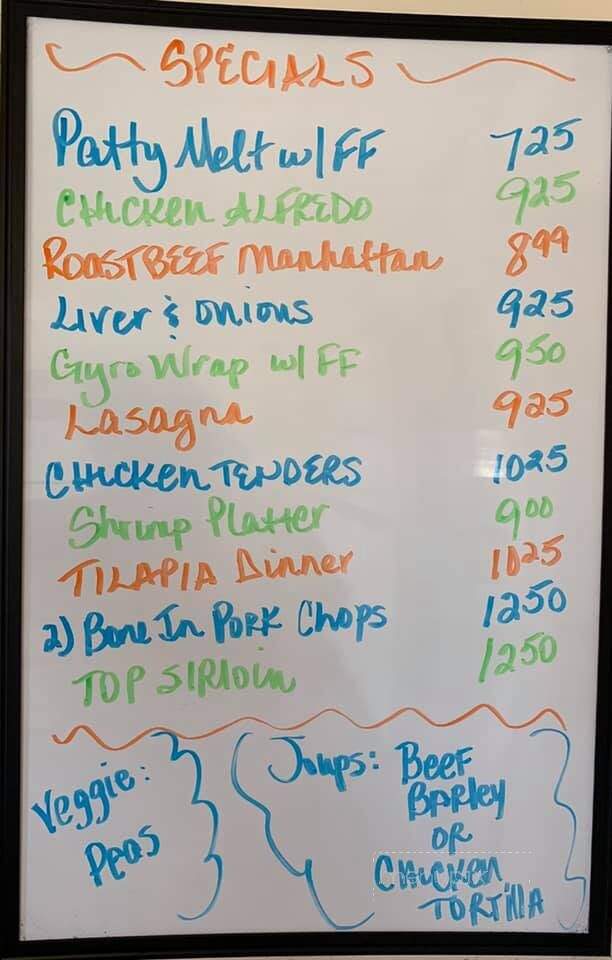 SPECIALS
Patty Melt w/ FF 725
CHICKEN ALFREDO 925
ROASTBEEF Manhattan 899
Liver & Onions 925
Gyro Wrap w/ FF 950
Lasagna 925
CHICKEN TENDERS 1025
Shrimp Platter 900
TILAPIA Dinner 1025
2) Bone In PORK Chops 1250
TOP SIRLOIN 1250
Veggie:
Peas
Soups: BEEF
BARLEY
OR
CHICKEN
TORTILLA